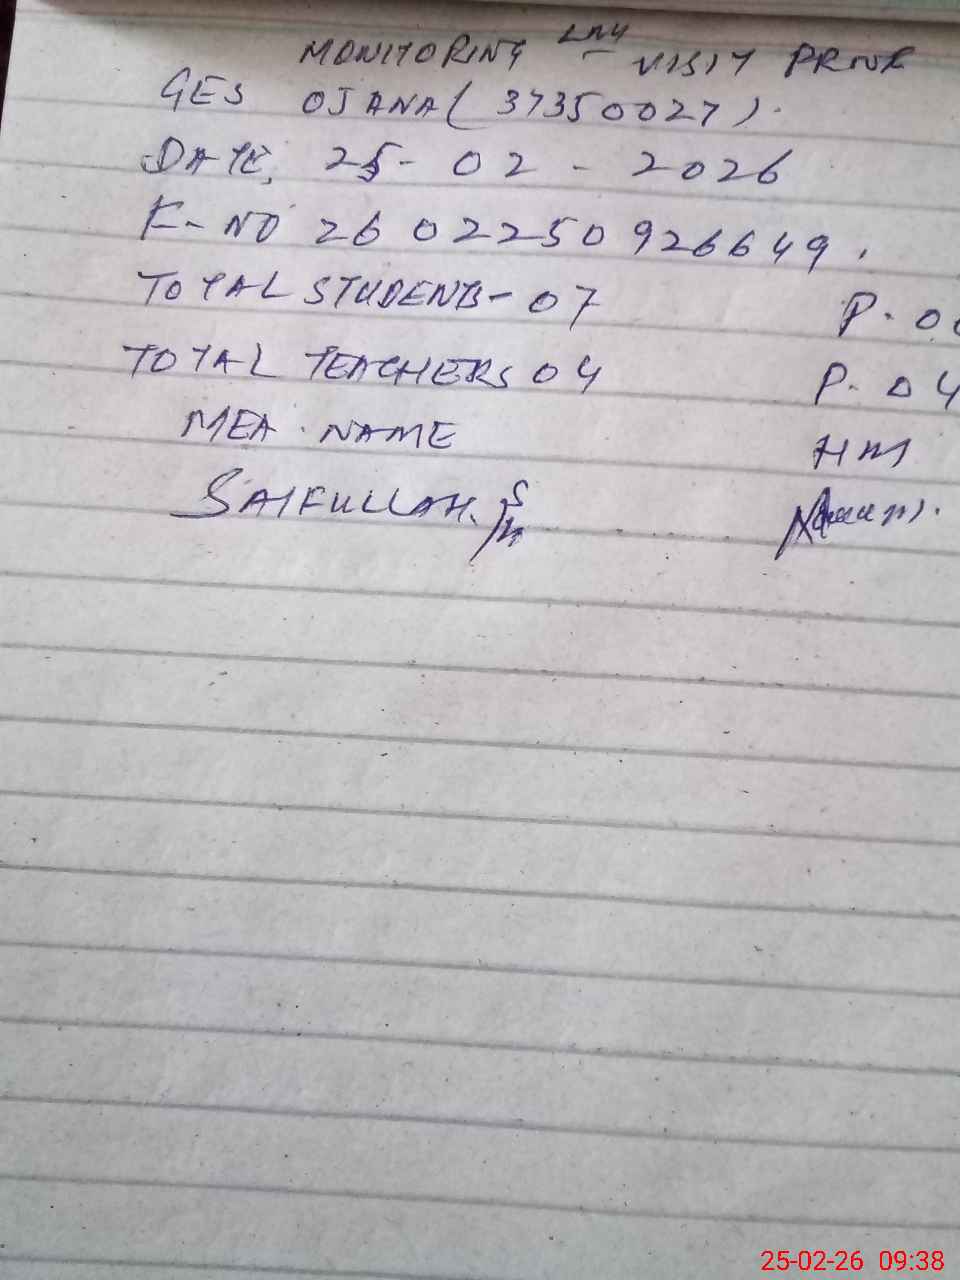 MONITORING VISIT
GES OJANA (37350027).
DATE, 25-02-2026
K-NO 2602250926649.
TOTAL STUDENTS-07 P.
TOTAL TEACHERS 04 P. 04
MEA NAME HM
SAIFULLAH.
25-02-26 09:38